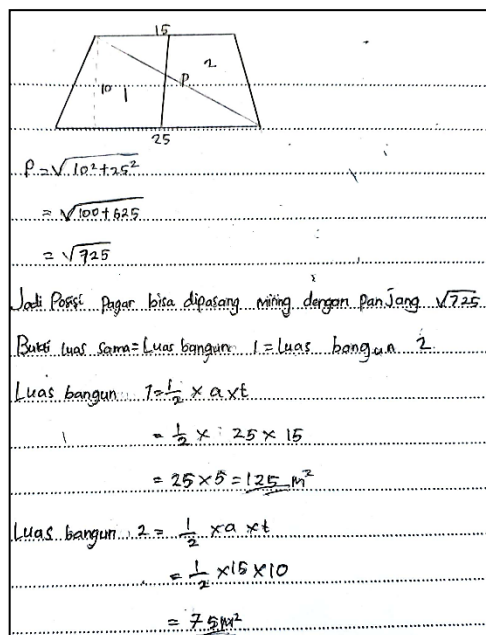 15
2
P
10 1
25
P = √10²+25²
= √100+625
= √725
Jadi Posisi pagar bisa dipasang miring dengan panjang √725
Bukti luas sama = Luas bangun 1 = luas bangun 2
Luas bangun 1 = 1/2 × a × t
= 1/2 × 25 × 15
= 25 × 5 = 125 m²
Luas bangun 2 = 1/2 × a × t
= 1/2 × 15 × 10
= 75 m²